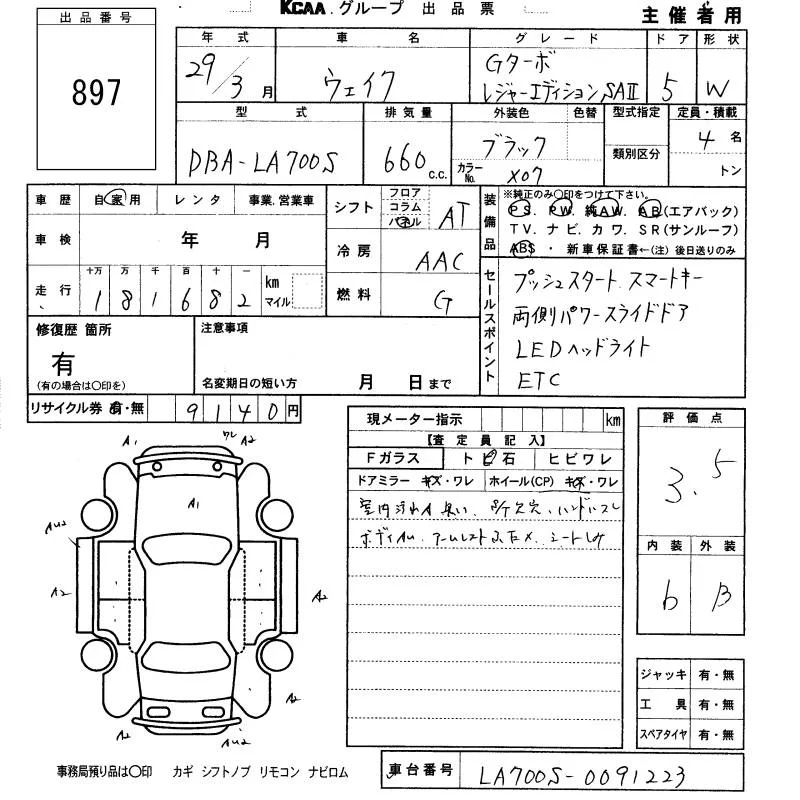 KCAA.グループ 出品票
主催者用
出品番号
897
年式 車名 グレード ドア 形状
29/3月 ウェイク Gターボ
レジャーエディションSAII 5 W
型式 排気量 外装色 色替 型式指定 定員・積載
DBA-LA700S 660c.c. ブラック 4名
カラーNo. X07 類別区分 トン
車歴 自家用 レンタ 事業.営業車
車検 年 月
走行 十万 万 千 百 十 一
1 8 1 6 8 2 km マイル
シフト フロア コラム パネル AT
冷房 AAC
燃料 G
装備品 ※純正のみ○印をつけて下さい。
PS. PW. 純AW. AB(エアバック)
TV. ナビ. カワ. SR(サンルーフ)
ABS ・ 新車保証書←(注) 後日送りのみ
セールスポイント
プッシュスタート スマートキー
両側パワースライドドア
LEDヘッドライト
ETC
修復歴 箇所
有
(有の場合は○印を)
注意事項
名変期日の短い方 月 日まで
リサイクル券 有・無 9140円
現メーター指示 km
【査定員記入】
Fガラス トビ石 ヒビワレ
ドアミラー キズ・ワレ ホイール(CP) キズ・ワレ
室内汚れ 臭い、 穴、ハンドルスレ
ボディAU. アームレスト シート
評価点
3.5
内装 外装
b B
ジャッキ 有・無
工具 有・無
スペアタイヤ 有・無
A1 ワレ A2
A1
AU2
A2 A2
A2
A2 AU2
事務局預り品は○印 カギ シフトノブ リモコン ナビロム
車台番号 LA700S-0091223